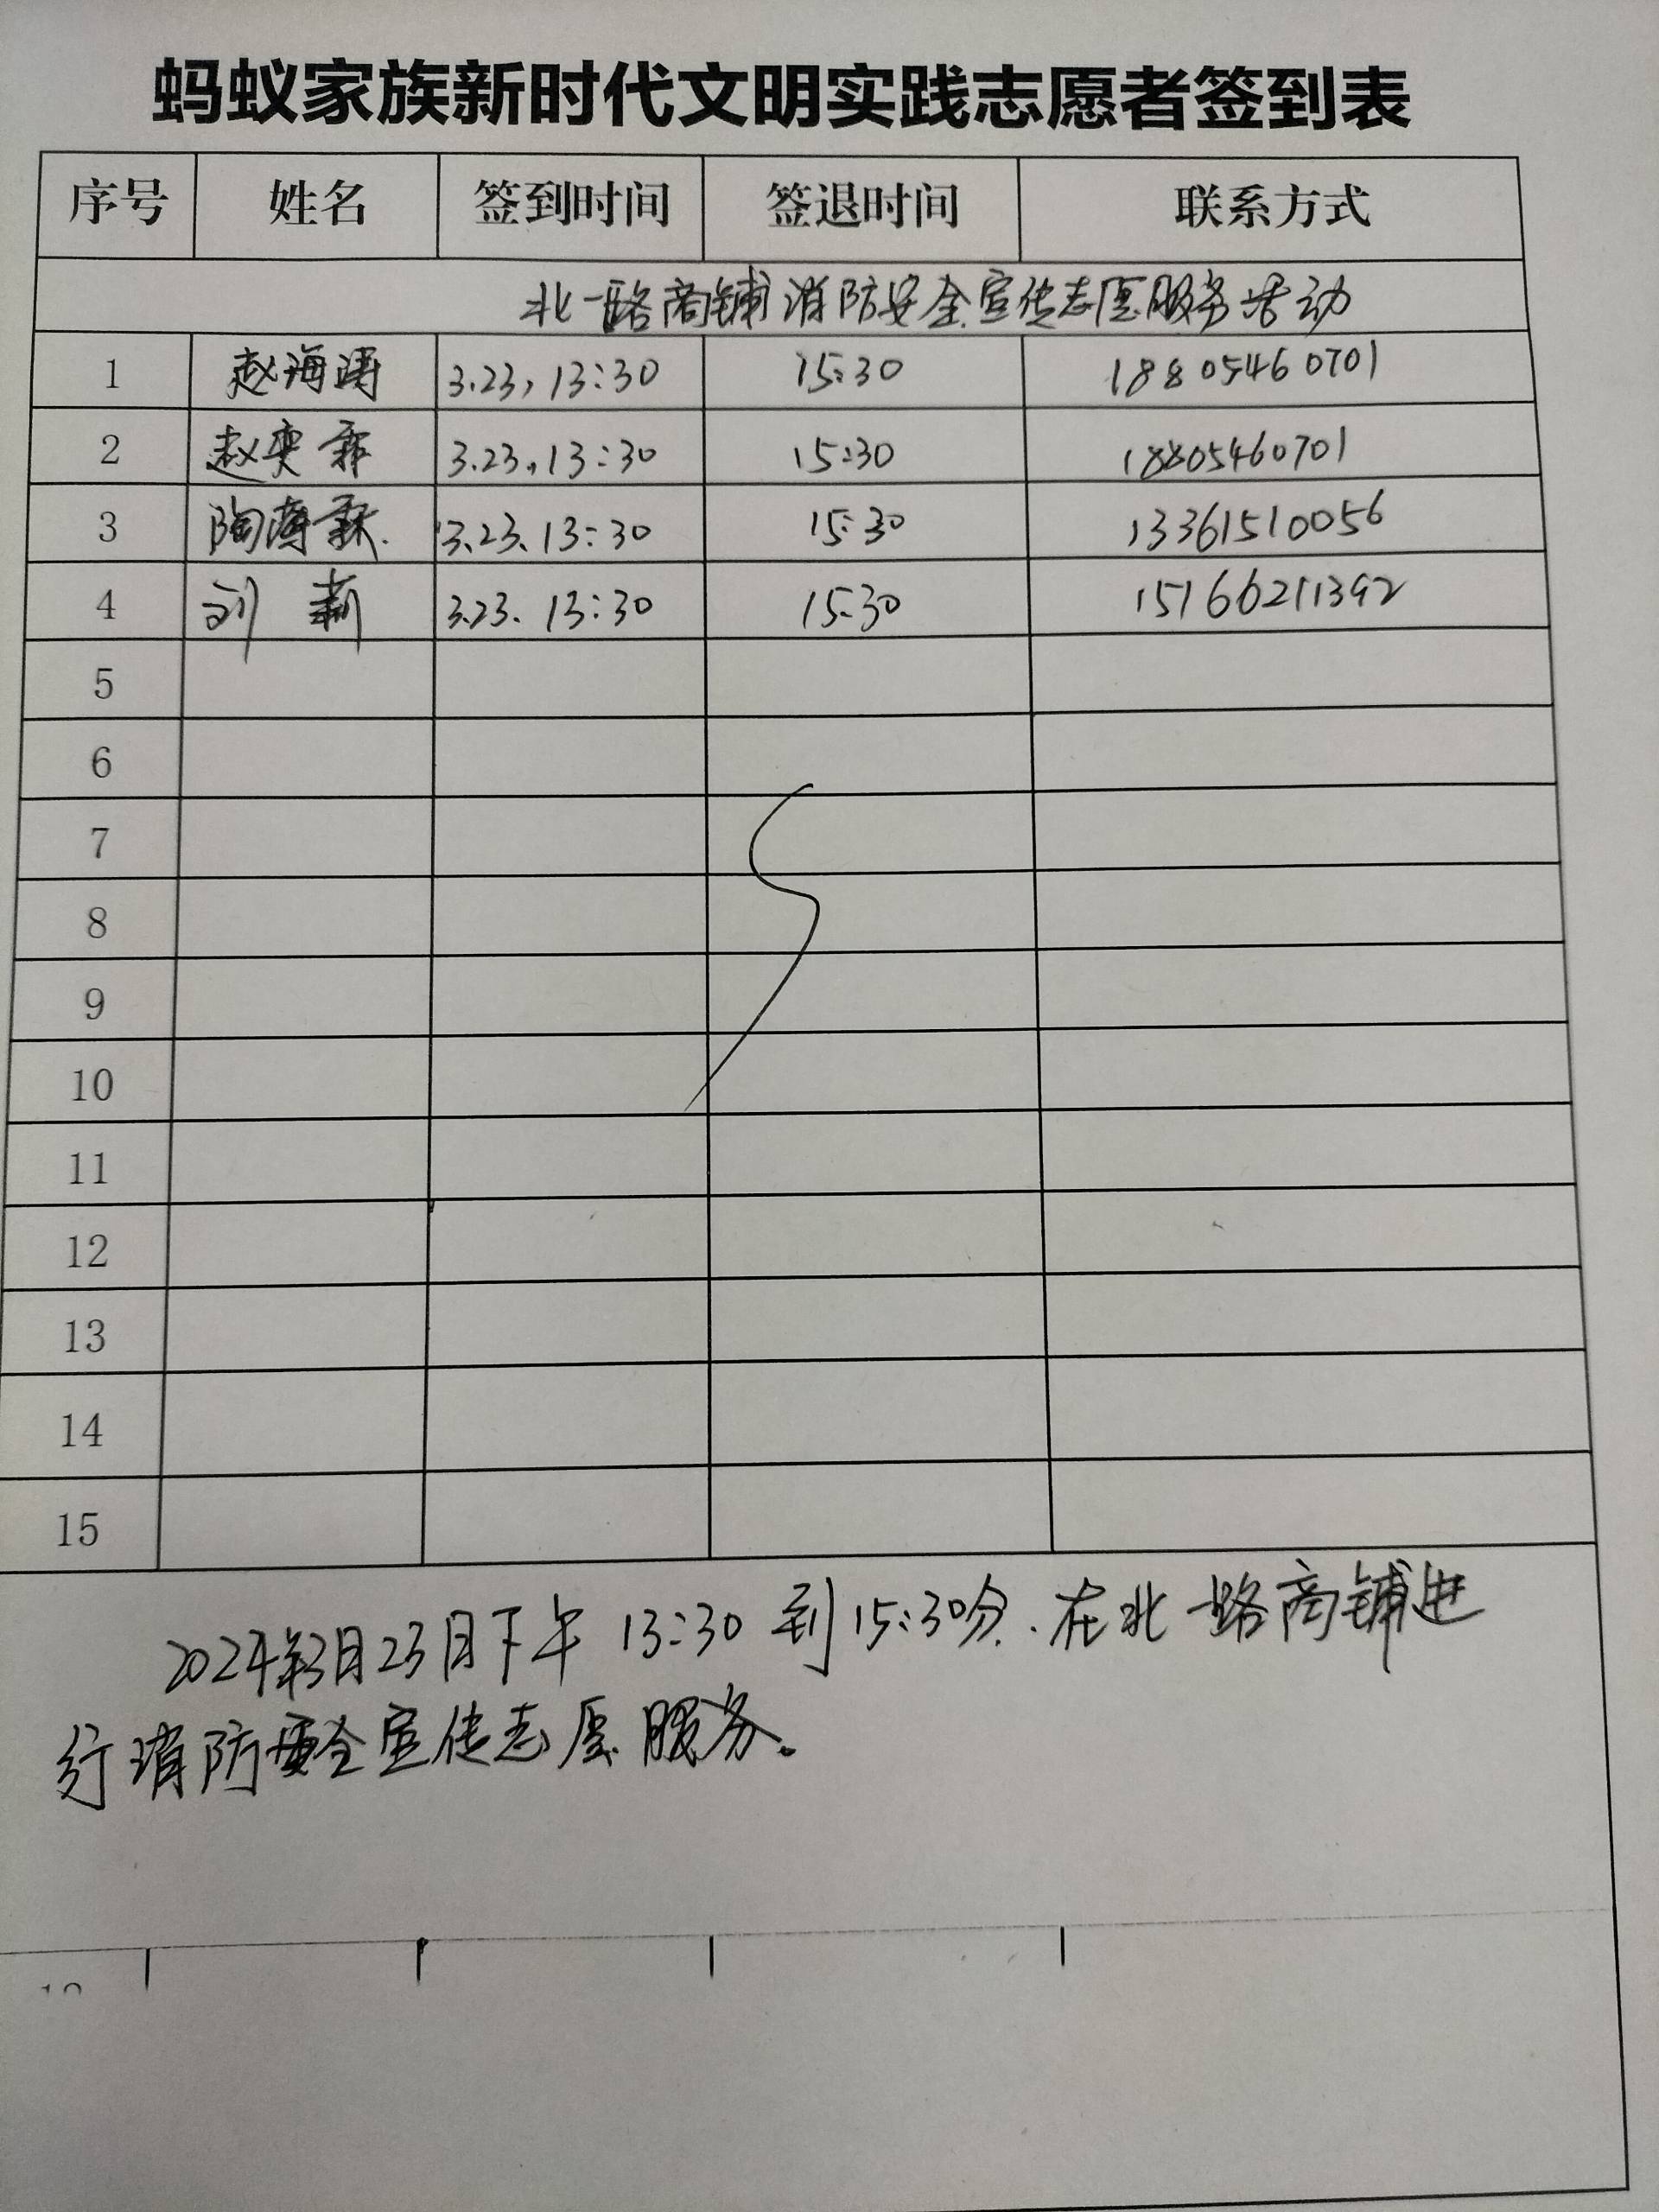 蚂蚁家族新时代文明实践志愿者签到表
序号 姓名 签到时间 签退时间 联系方式
北一路商铺消防安全宣传志愿服务活动
1 赵海涛 3.23, 13:30 15:30 18805460701
2 赵奕霏 3.23, 13:30 15:30 18805460701
3 陶 3.23. 13:30 15:30 13361510056
4 刘莉 3.23. 13:30 15:30 15166211392
5
6
7
8
9
10
11
12
13
14
15
2024年3月23日下午13:30到15:30分.在北一路商铺进
行消防安全宣传志愿服务。